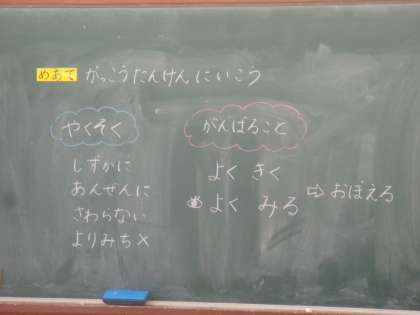 めあて がっこうたんけんにいこう
やくそく
しずかに
あんぜんに
さわらない
よりみち×
がんばること
よく きく
よく みる ⇨ おぼえる